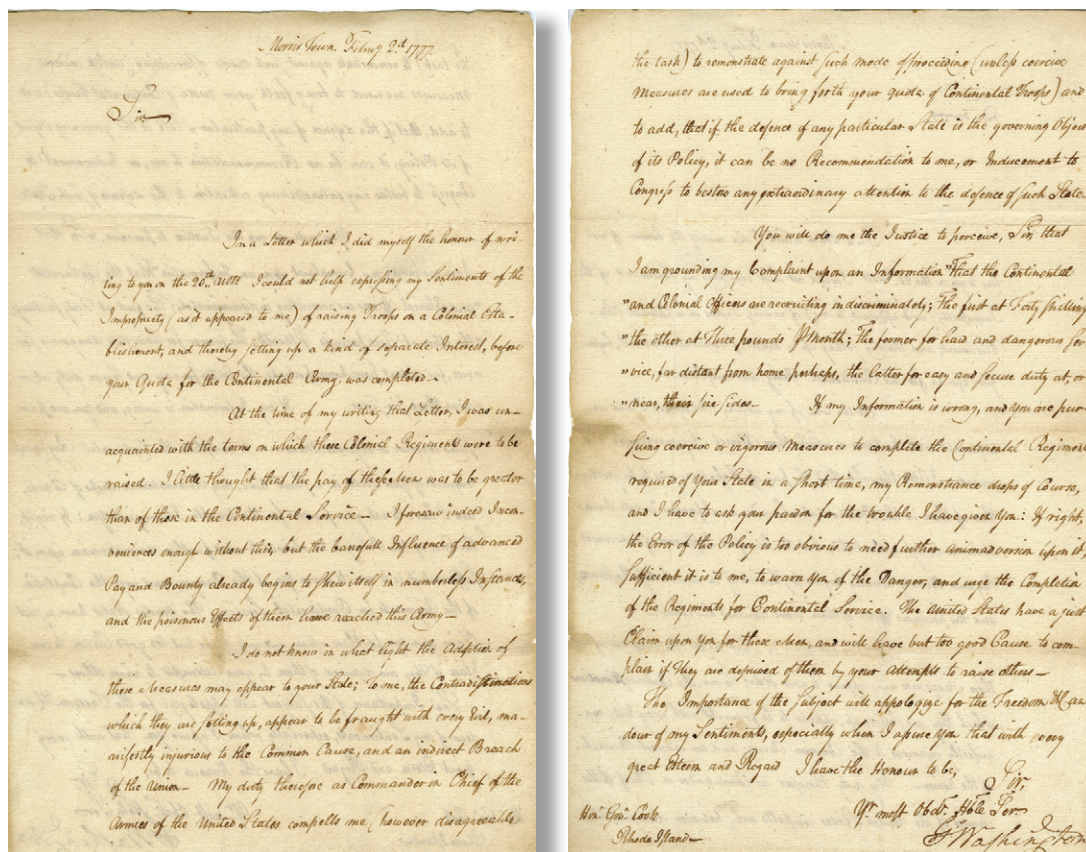 Morris Town Febuy 2d. 1777.
Sir
In a Letter which I did myself the honour of wri-
ting to you on the 20th. Ulto. I could not help expressing my Sentiments of the
Impropriety (as it appeared to me) of raising Troops on a Colonial Esta-
blishment, and thereby setting up a kind of separate Interest, before
your Quota for the Continental Army, was completed.-
At the time of my writing that Letter, I was un-
acquainted with the terms on which these Colonial Regiments were to be
raised. I little thought that the pay of these Men was to be greater
than of those in the Continental Service- I foresaw indeed Incon-
veniences enough without this, but the banefull Influence of advanced
Pay and Bounty already begins to shew itself in numberless Instances,
and the poisonous Effects of them have reached this Army-
I do not know in what light the Adoption of
these Measures may appear to your State; To me, the Contradistinctions
which they are setting up, appear to be fraught with every Evil, ma-
nifestly injurious to the Common Cause, and an indirect Breach
of the Union- My duty therefore as Commander in Chief of the
Armies of the United States compells me (however disagreeable
the task) to remonstrate against such mode of proceeding (unless coercive
measures are used to bring forth your quota of Continental Troops) and
to add, that if the defence of any particular State is the governing Object
of its Policy, it can be no Recommendation to me, or Inducement to
Congress to bestow any extraordinary attention to the defence of such State.
You will do me the Justice to perceive, Sir, that
I am grounding my Complaint upon an Information "That the Continental
"and Colonial Officers are recruiting indiscriminately; The first at Forty shillings
"the other at Three pounds P Month; The former for hard and dangerous ser
"vice, far distant from home perhaps, the latter for easy and secure duty at, or
"near, their fire sides- If my Information is wrong, and you are pur
suing coercive or vigorous Measures to complete the Continental Regiments
required of your State in a short time, my Remonstrance drops of Course,
and I have to ask your pardon for the trouble I have given You: If right
the Error of the Policy is too obvious to need further animadversion upon it
Sufficient it is to me, to warn you of the Danger, and urge the Completion
of the Regiments for Continental Service. The United States have a just
Claim upon You for these Men, and will have but too good Cause to com-
plain if They are deprived of them by your Attempts to raise others-
The Importance of the Subject will appologize for the Freedom & Can
dour of my Sentiments, especially when I assure You that with every
great Esteem and Regard I have the Honour to be,
Sir,
Yr. most Obdt. Hble Ser
G Washington
Honl. Govr. Cook
Rhode Island-